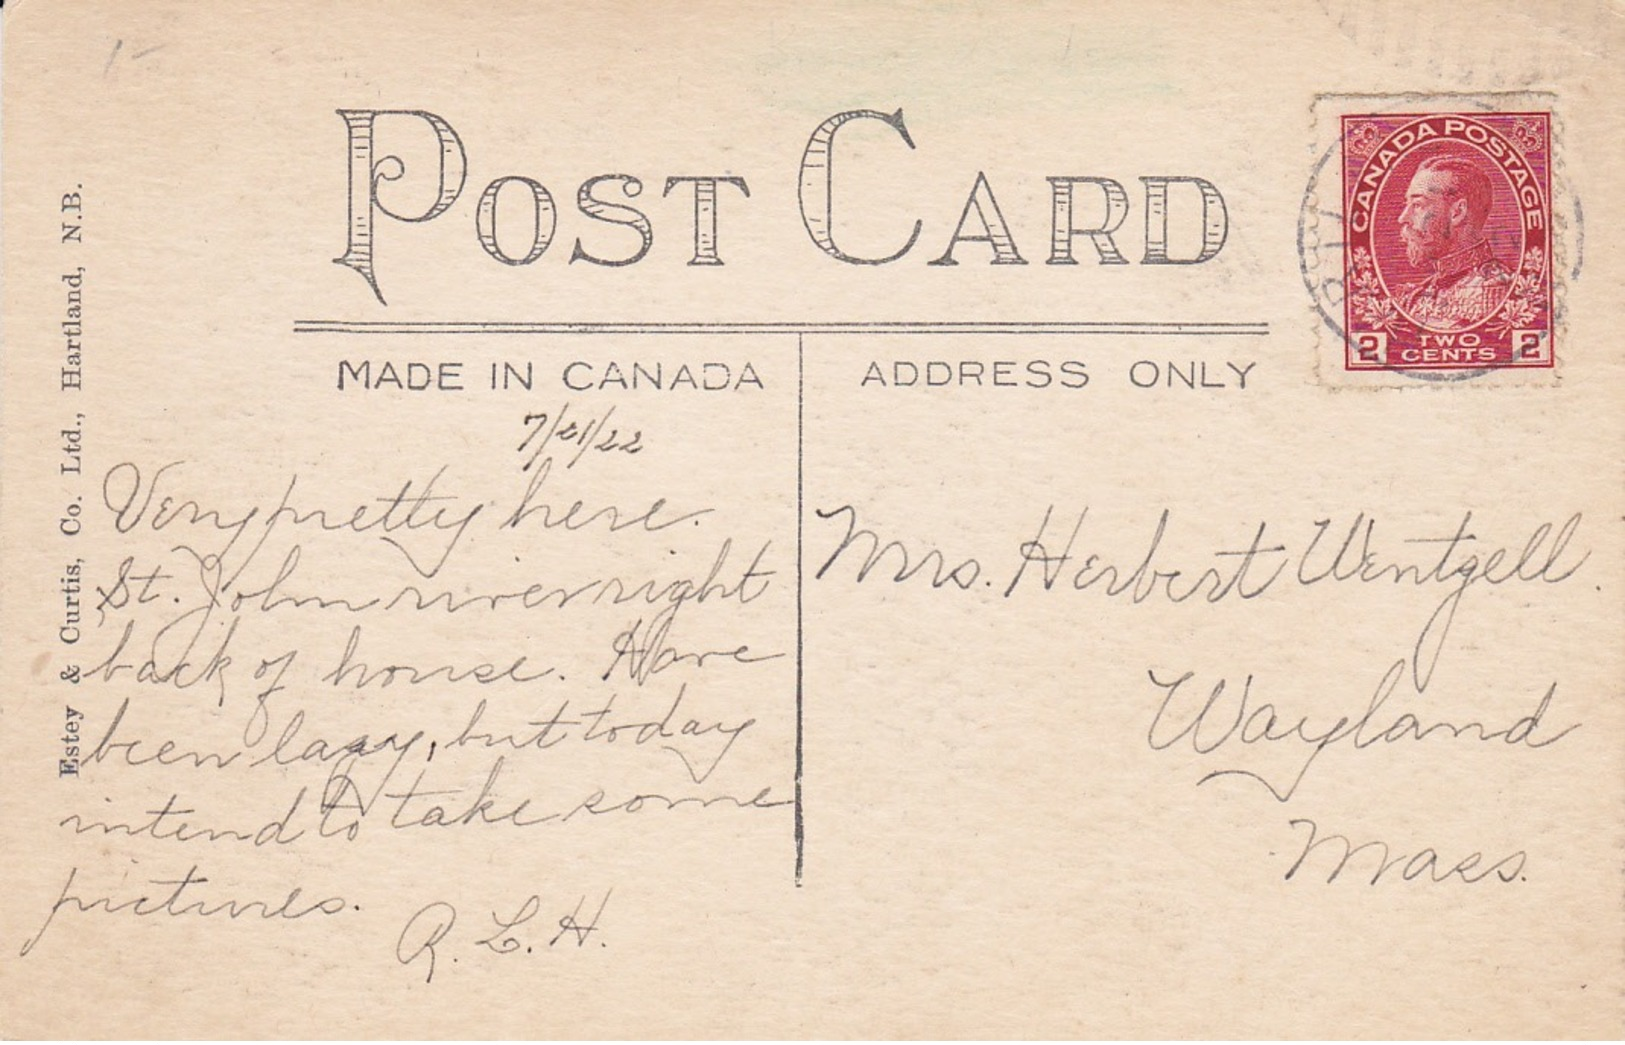 POST CARD
MADE IN CANADA
ADDRESS ONLY
CANADA POSTAGE
2 TWO CENTS 2
Estey & Curtis, Co. Ltd., Hartland, N.B.
7/21/22
Very pretty here.
St. John river right
back of house. Have
been lazy, but today
intend to take some
pictures.
R. L. H.
Mrs. Herbert Wentzell.
Wayland
Mass.